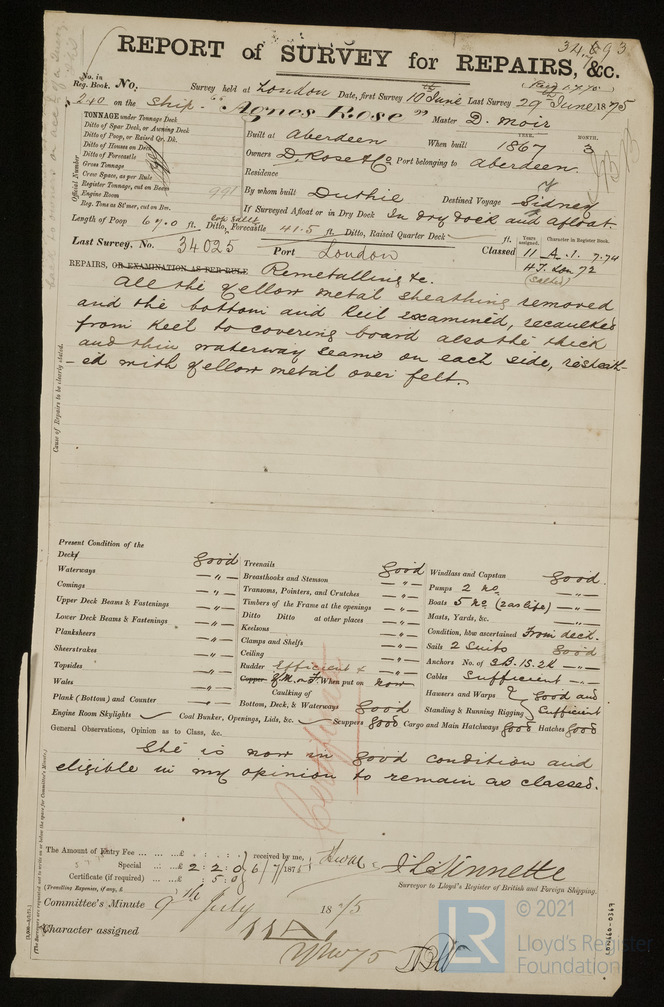 34,893
REPORT of SURVEY for REPAIRS, &c.
No. in Reg. Book. No: Survey held at London Date, first Survey 10th June Last Survey 29th June 1875
240 on the Ship "Agnes Rose" Master D. Moir
TONNAGE under Tonnage Deck
Ditto of Spar Deck, or Awning Deck
Ditto of Poop, or Raised Qr. Dk.
Ditto of Houses on Deck
Ditto of Forecastle
Gross Tonnage
Crew Space, as per Rule
Register Tonnage, cut on Beam
Engine Room
Reg. Tons as St'mer, cut on Bm.
Official Number
991
Built at Aberdeen When built YEAR. 1867 MONTH. 3
Owners D. Rose & Co Port belonging to Aberdeen.
Residence
By whom built Duthie Destined Voyage Sidney
If Surveyed Afloat or in Dry Dock In dry dock and afloat.
Length of Poop 67.0 ft. Ditto, Forecastle 41.5 ft. Ditto, Raised Quarter Deck ft.
Last Survey, No. 34025 Port London Classed
Years assigned. Character in Register Book.
11 A.1. 7.74
(Salted)
REPAIRS, OR EXAMINATION AS PER RULE Remetalling &c.
All the yellow metal sheathing removed
and the bottom and keil examined, recaulked
from keel to covering board also the thick
and thin waterway seams on each side, resheath-
-ed with yellow metal over felt.
Cause of Repairs to be clearly stated.
Present Condition of the
Decks good
Waterways -"-
Comings -"-
Upper Deck Beams & Fastenings -"-
Lower Deck Beams & Fastenings -"-
Planksheers -"-
Sheerstrakes -"-
Topsides -"-
Wales -"-
Plank (Bottom) and Counter -"-
Treenails good
Breasthooks and Stemson -"-
Transoms, Pointers, and Crutches -"-
Timbers of the Frame at the openings -"-
Ditto Ditto at other places -"-
Keelsons -"-
Clamps and Shelfs -"-
Ceiling -"-
Rudder Efficient
Copper Y.M. & F. When put on now
Caulking of
Bottom, Decks, & Waterways Good
Windlass and Capstan good.
Pumps 2 No. -"-
Boats 5 No (2 as life) -"-
Masts, Yards, &c. -"-
Condition, how ascertained From deck.
Sails 2 Suits Good
Anchors No. of 3B.1S.2K -"-
Cables Sufficient -"-
Hawsers and Warps Good and
Standing & Running Rigging Sufficient
Engine Room Skylights Coal Bunker, Openings, Lids, &c. Scuppers good Cargo and Main Hatchways good Hatches good
General Observations, Opinion as to Class, &c.
She is now in good condition and
eligible in my opinion to remain as classed.
Certificate
The Amount of Entry Fee ... ... ...£ : :
Special ... ...£ 2 : 2 : 0
Certificate (if required) ... ...£ : 5 : 0
received by me,
6/7/1875
(Travelling Expenses, if any, £
Surveyor to Lloyd's Register of British and Foreign Shipping.
Committee's Minute 9th July 1875
Character assigned 11A1
LR
© 2021
Lloyd's Register
Foundation